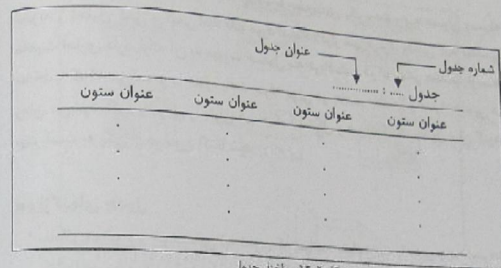 عنوان جدول
شماره جدول
جدول ..... : ..............
عنوان ستون عنوان ستون عنوان ستون عنوان ستون
جدول